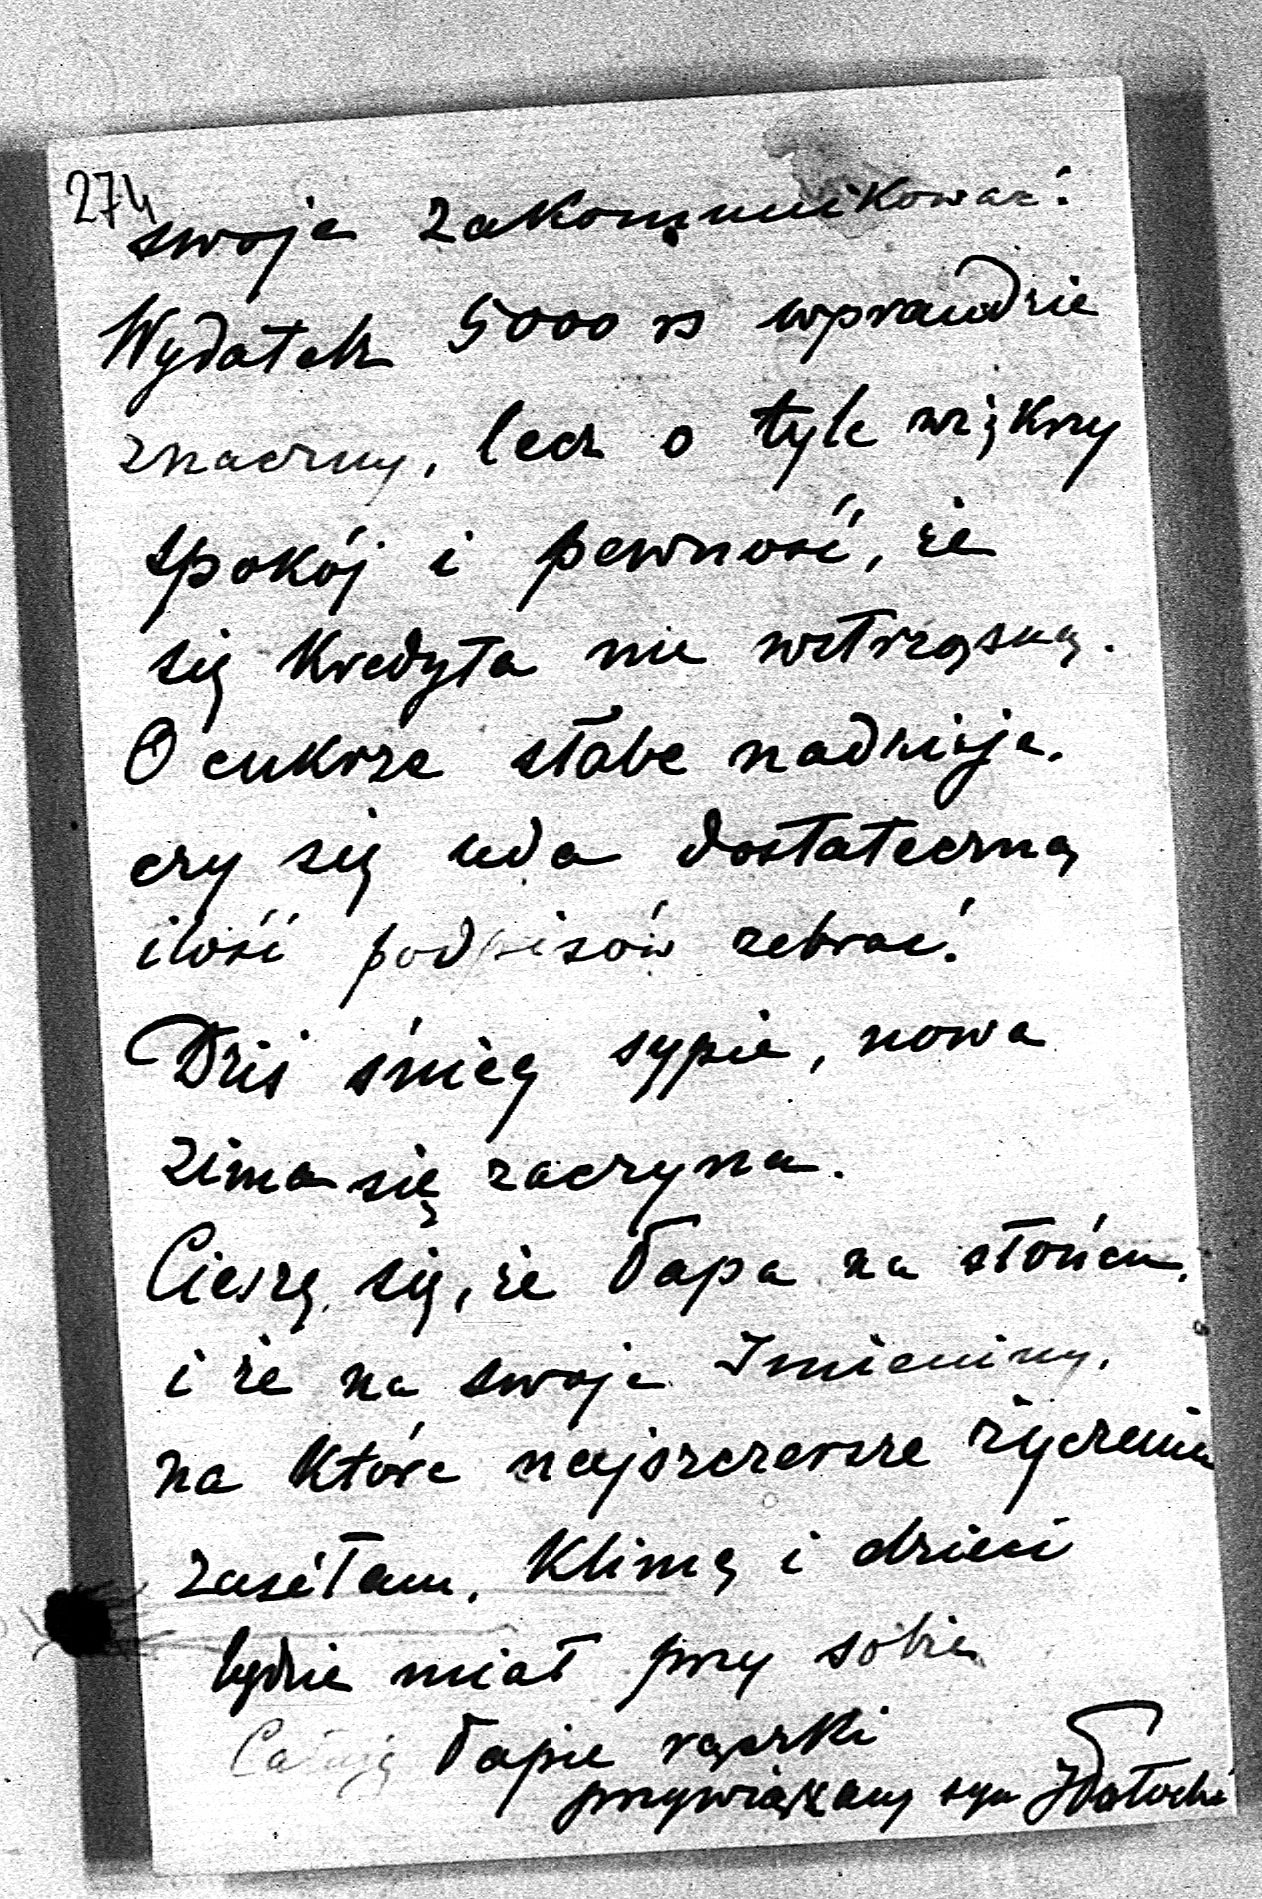 274
swoje zakomunikować.
Wydatek 5000 rs wprawdzie
znaczny, lecz o tyle większy
spokój i pewność, że
się kredyta nie wstrząsną.
O cukrze słabe nadzieje.
czy się uda dostateczną
ilość podpisów zebrać.
Dziś śnieg sypie, nowa
zima się zaczyna.
Cieszę się, że Papa na słońcu,
i że na swoje Imieniny,
na które najszczersze życzenia
zasełam, Klimę i dzieci
będzie miał przy sobie
Całuję Papie rączki
przywiązany syn JPotocki